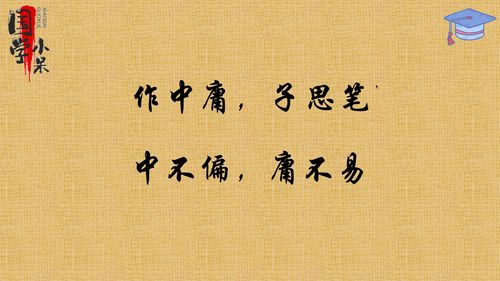 国学
小米
XIAOMI
GUOXUE
作中庸，子思笔
中不偏，庸不易